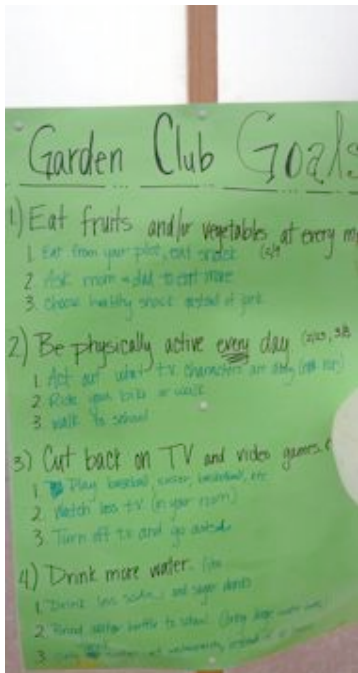 Garden Club Goals
1) Eat fruits and/or vegetables at every
1. Eat from your plot, eat snack
2. Ask mom + dad to eat more
3. Choose healthy snack instead of junk
2) Be physically active every day
1. Act out what t.v. characters are doing
2. Ride your bike or walk
3. Walk to school
3) Cut back on TV and video games.
1. Play baseball, soccer, basketball, etc
2. Watch less tv (in your room)
3. Turn off tv and go outside
4) Drink more water.
1. Drink less soda, and sugar drinks
2. water bottle to school
3.